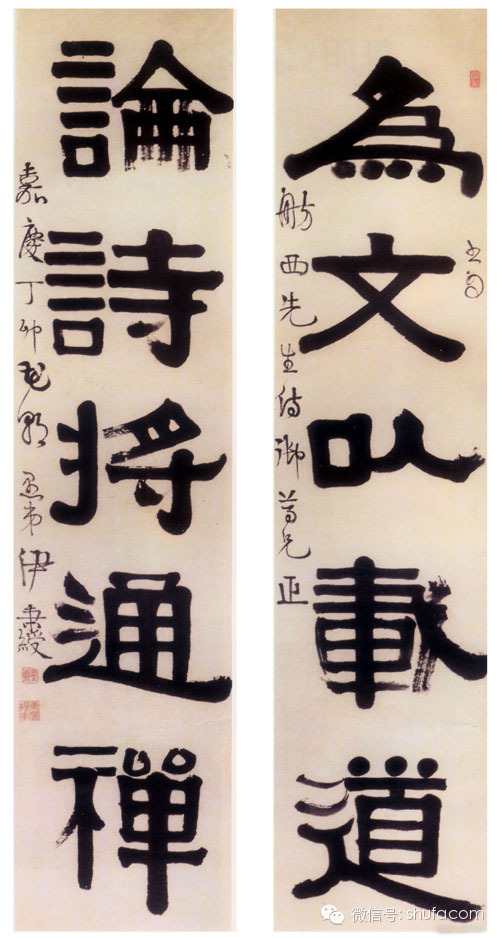 為文以載道
舫西先生侍御尊兄正
論詩將通禪
嘉慶丁卯花朝愚弟伊秉綬
微信号: shufacom